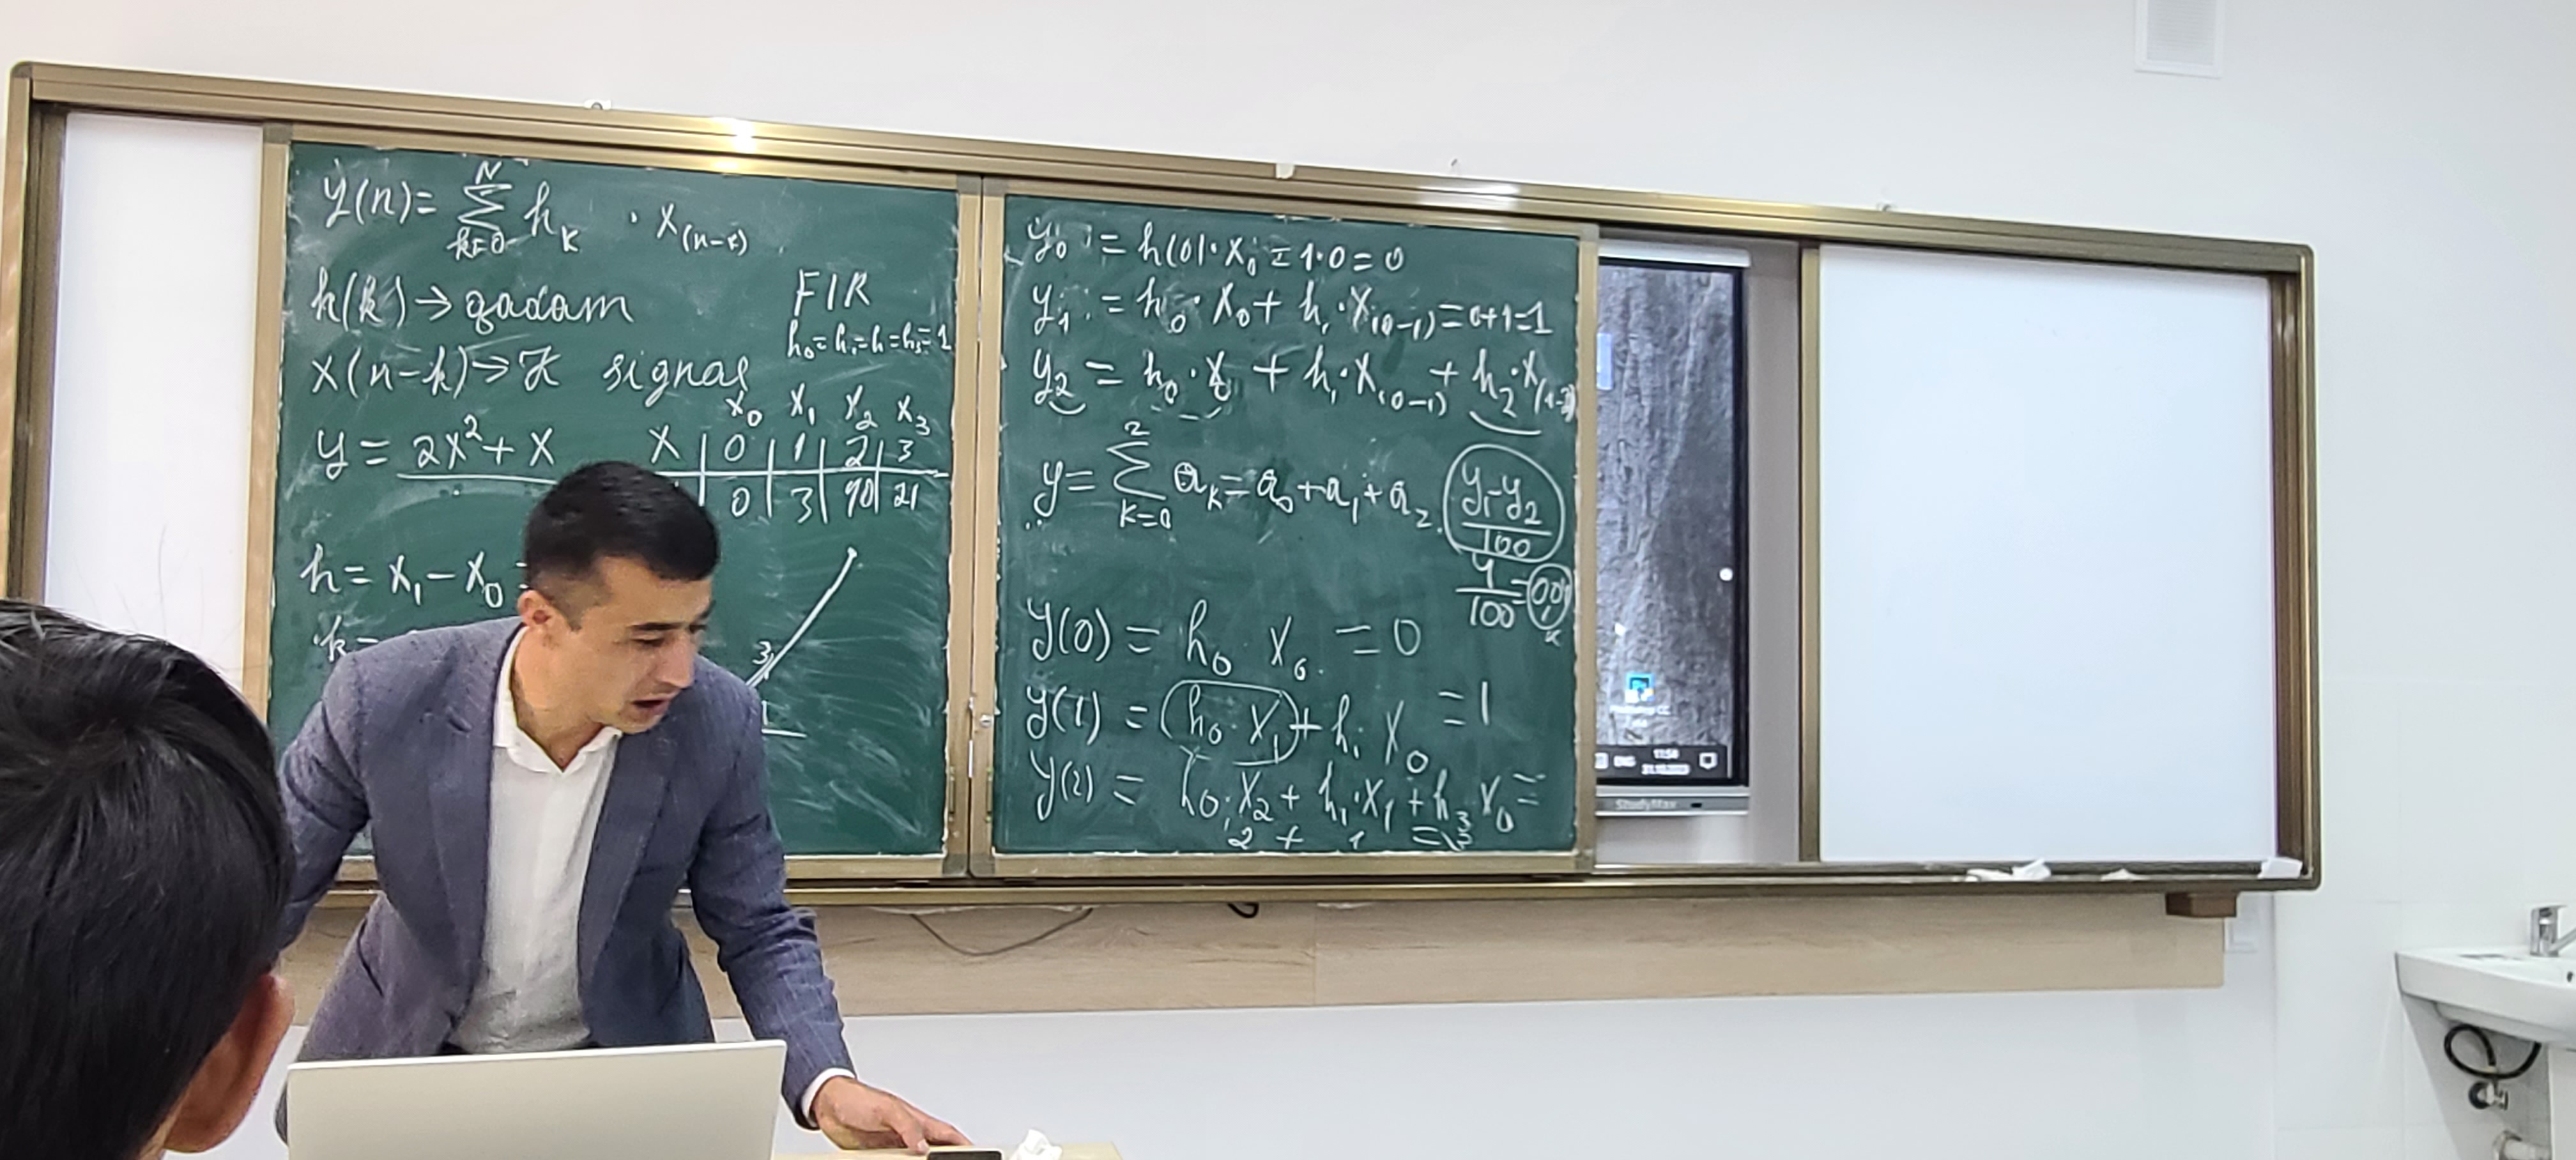 y(n) = N Σ k=0 h k · x (n-k)
h(k) → qadam
FIR
h0 = h1 = h = h3 = 1
x(n-k) → K signal
x0 x1 x2 x3
y = 2x²+x
x | 0 | 1 | 2 | 3
0 | 3 | 10 | 21
h = x1 - x0 =
k =
3
1
y0 = h(0)·x0 = 1·0 = 0
y1 = h0·x0 + h1·x(0-1) = 0+1=1
y2 = h0·x0 + h1·x(0-1) + h2·x
y = 2 Σ k=0 ak = a0 + a1 + a2
y1-y2
100
y
100 =
y(0) = h0 x0 = 0
y(1) = (h0·x1) + h1 x0 = 1
y(2) = h0·x2 + h1·x1 + h3 x0 =
2 + 1 = 3
ENG
StudyMax